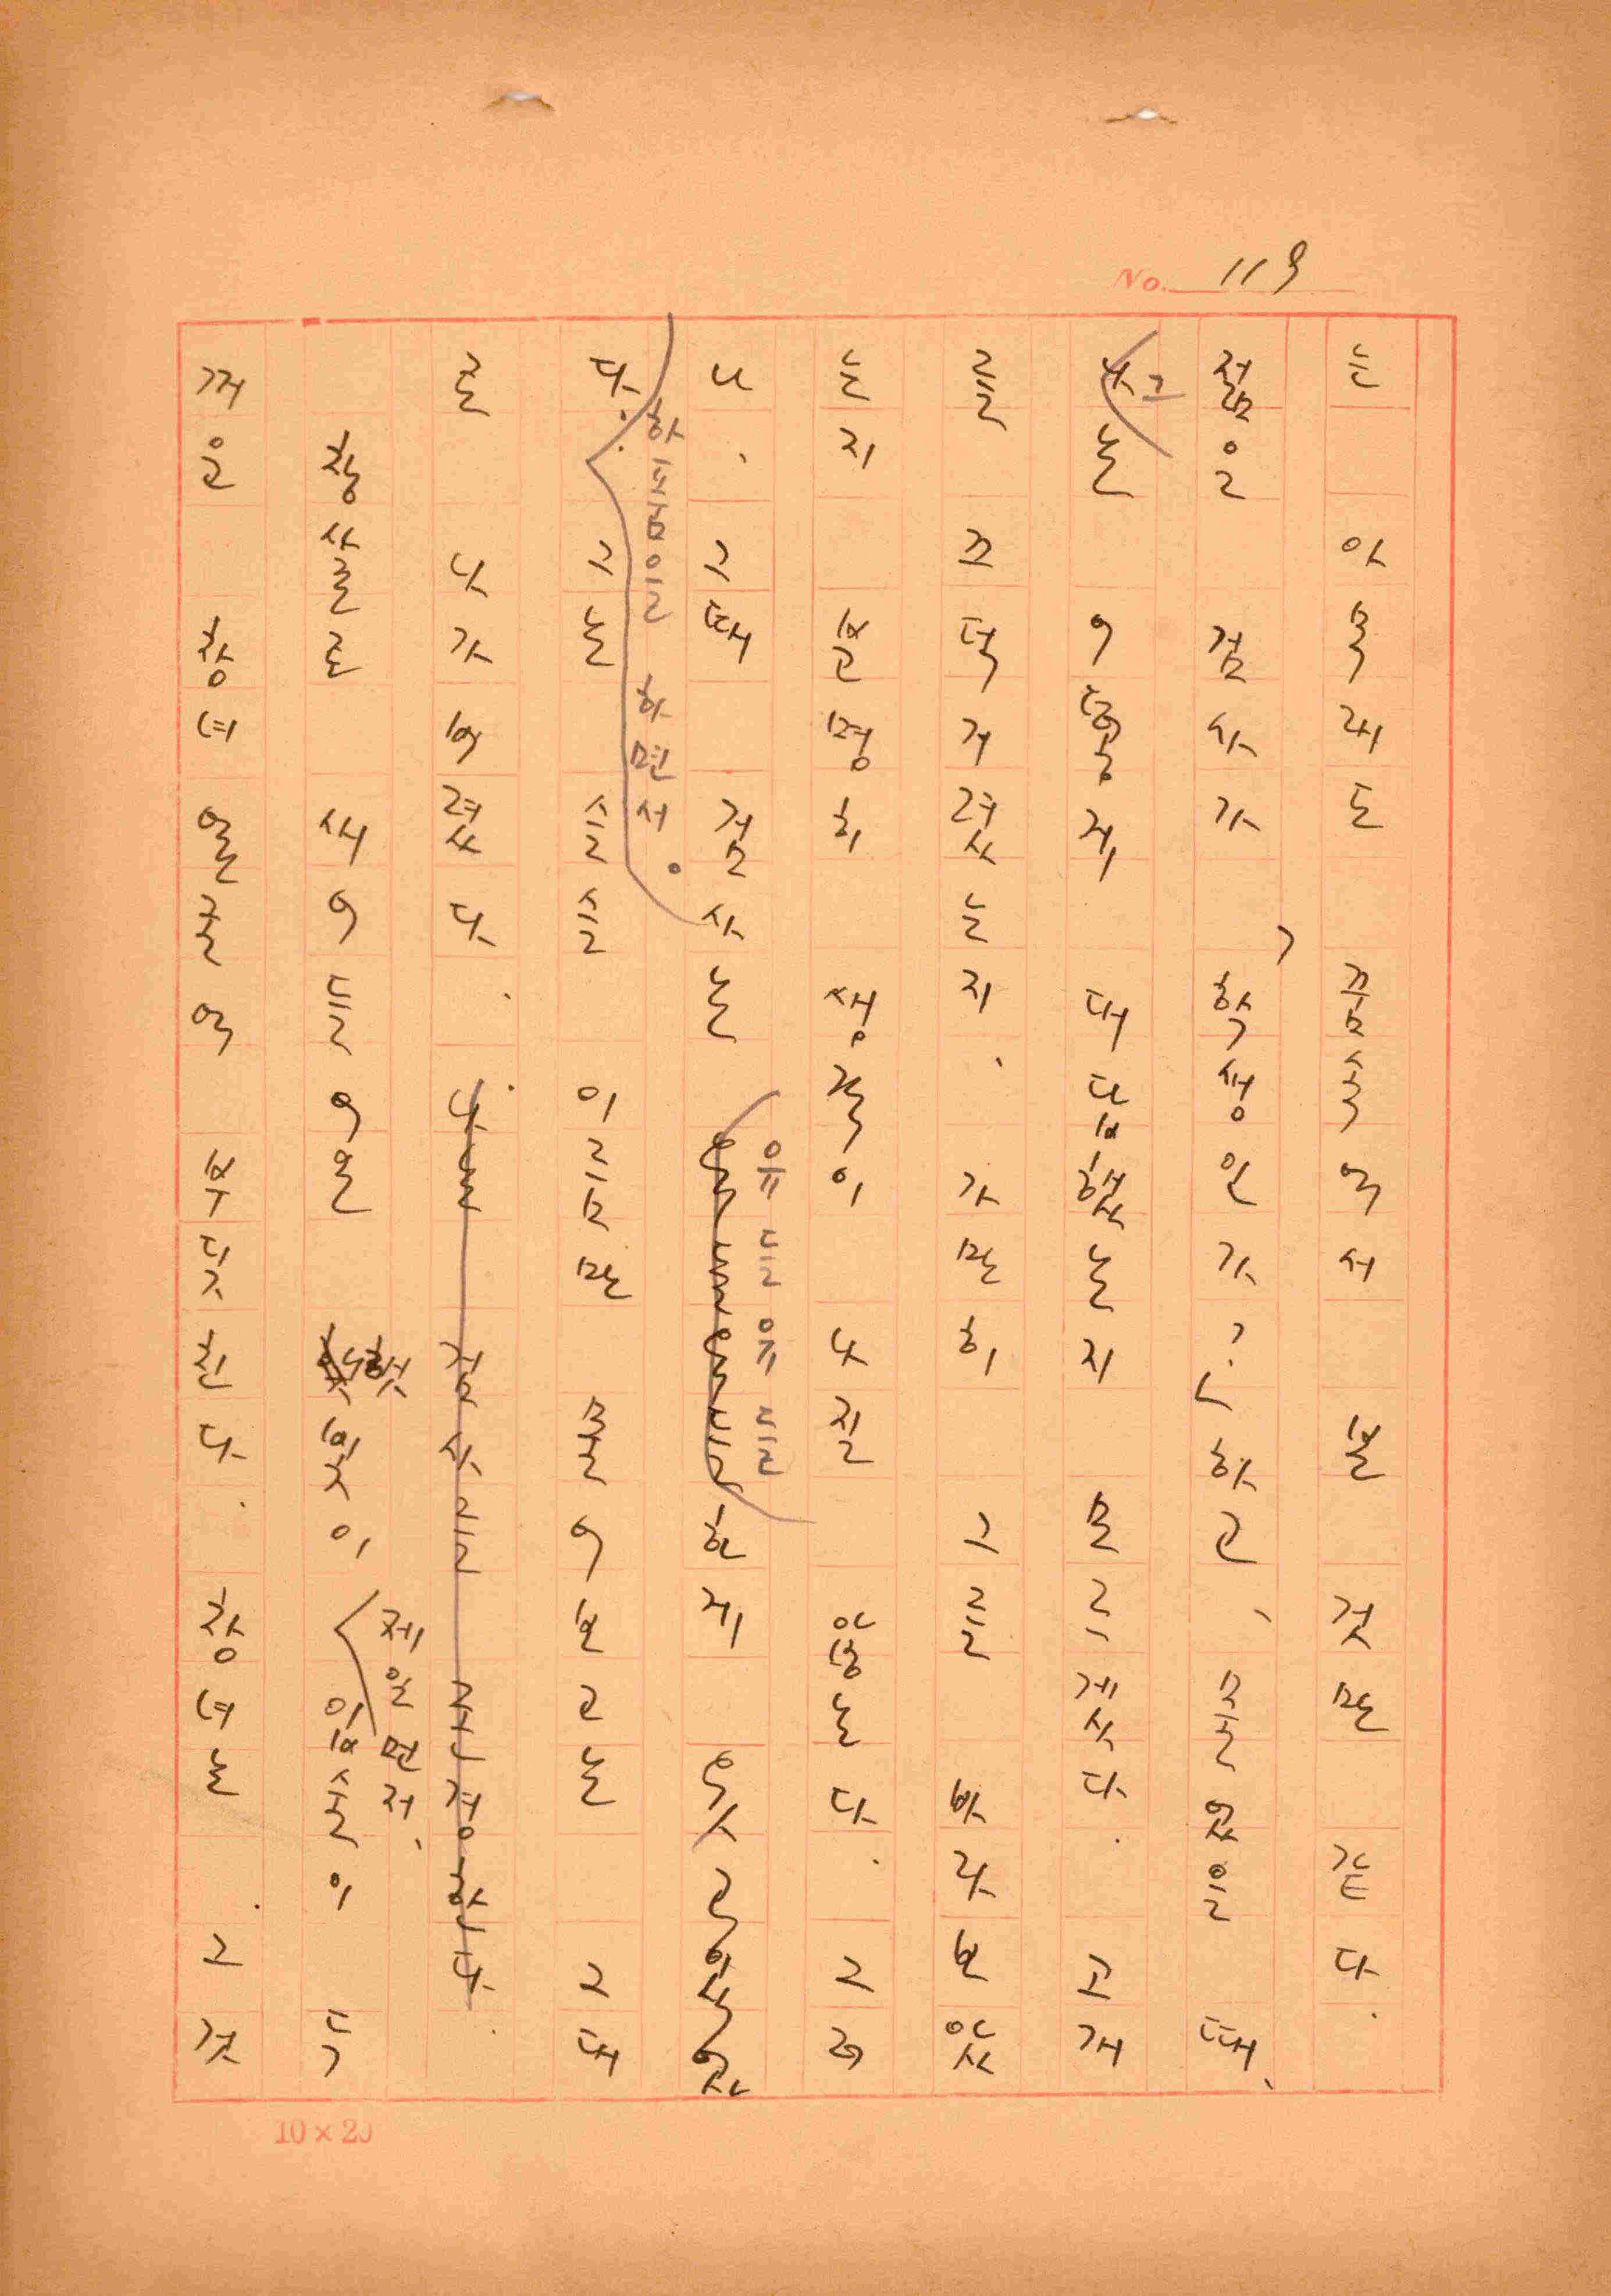 No. 119
는 아무래도 꿈속에서 본 것만 같다.
젊은 검사가, 학생인가? 하고, 물었을 때,
나그는 어떻게 대답했는지 모르겠다. 고개
를 끄덕거렸는지, 가만히 그를 바라보았
는지 분명히 생각이 나질 않는다. 그러
나, 그때 검사는 하게 웃고 있었
유들유들
하품을 하면서.
다. 그는 슬슬 이름만 물어보고는 그대
로 나가버렸다. 나는 검사를 존경한다.
창살로 새어들어온 햇빛이 입술이 두
제일먼저,
꺼운 창녀 얼굴에 부딪친다. 창녀는 그것
10×20